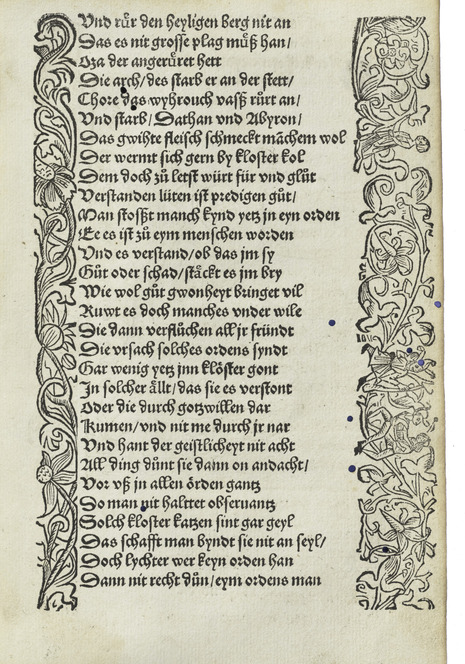 Vnd ruͤr den heyligen berg nit an
Das es nit grosse plag muͤß han/
Oza der angeruͤret hett
Die arch/des starb er an der stett/
Chore das wyhrouch vasß ruͤrt an/
Vnd starb/Dathan vnd Abyron/
Das gwihte fleisch schmeckt mãchem wol
Der wermt sich gern by kloster kol
Dem doch zuͤ letst würt für vnd gluͤt
Verstanden lüten ist predigen guͤt/
Man stosßt manch kynd yetz in eyn orden
Ee es ist zuͤ eym menschen worden
Vnd es verstand/ob das jm sy
Guͤt oder schad/staͤckt es jm bry
Wie wol guͤt gwonheyt bringet vil
Ruwt es doch manches vnder wile
Die dann verfluͤchen all jr fründt
Die vrsach solches ordens syndt
Gar wenig yetz jnn kloͤster gont
In solcher aͤllt/das sie es verstont
Oder die durch gotzwillen dar
Kumen/vnd nit me durch jr nar
Vnd hant der geistlicheyt nit acht
All ding duͤnt sie dann on andacht/
Vor vß in allen oͤrden gantz
So man nit halttet obseruantz
Solch kloster katzen sint gar geyl
Das schafft man byndt sie nit an seyl/
Doch lychter wer keyn orden han
Dann nit recht duͤn/eym ordens man